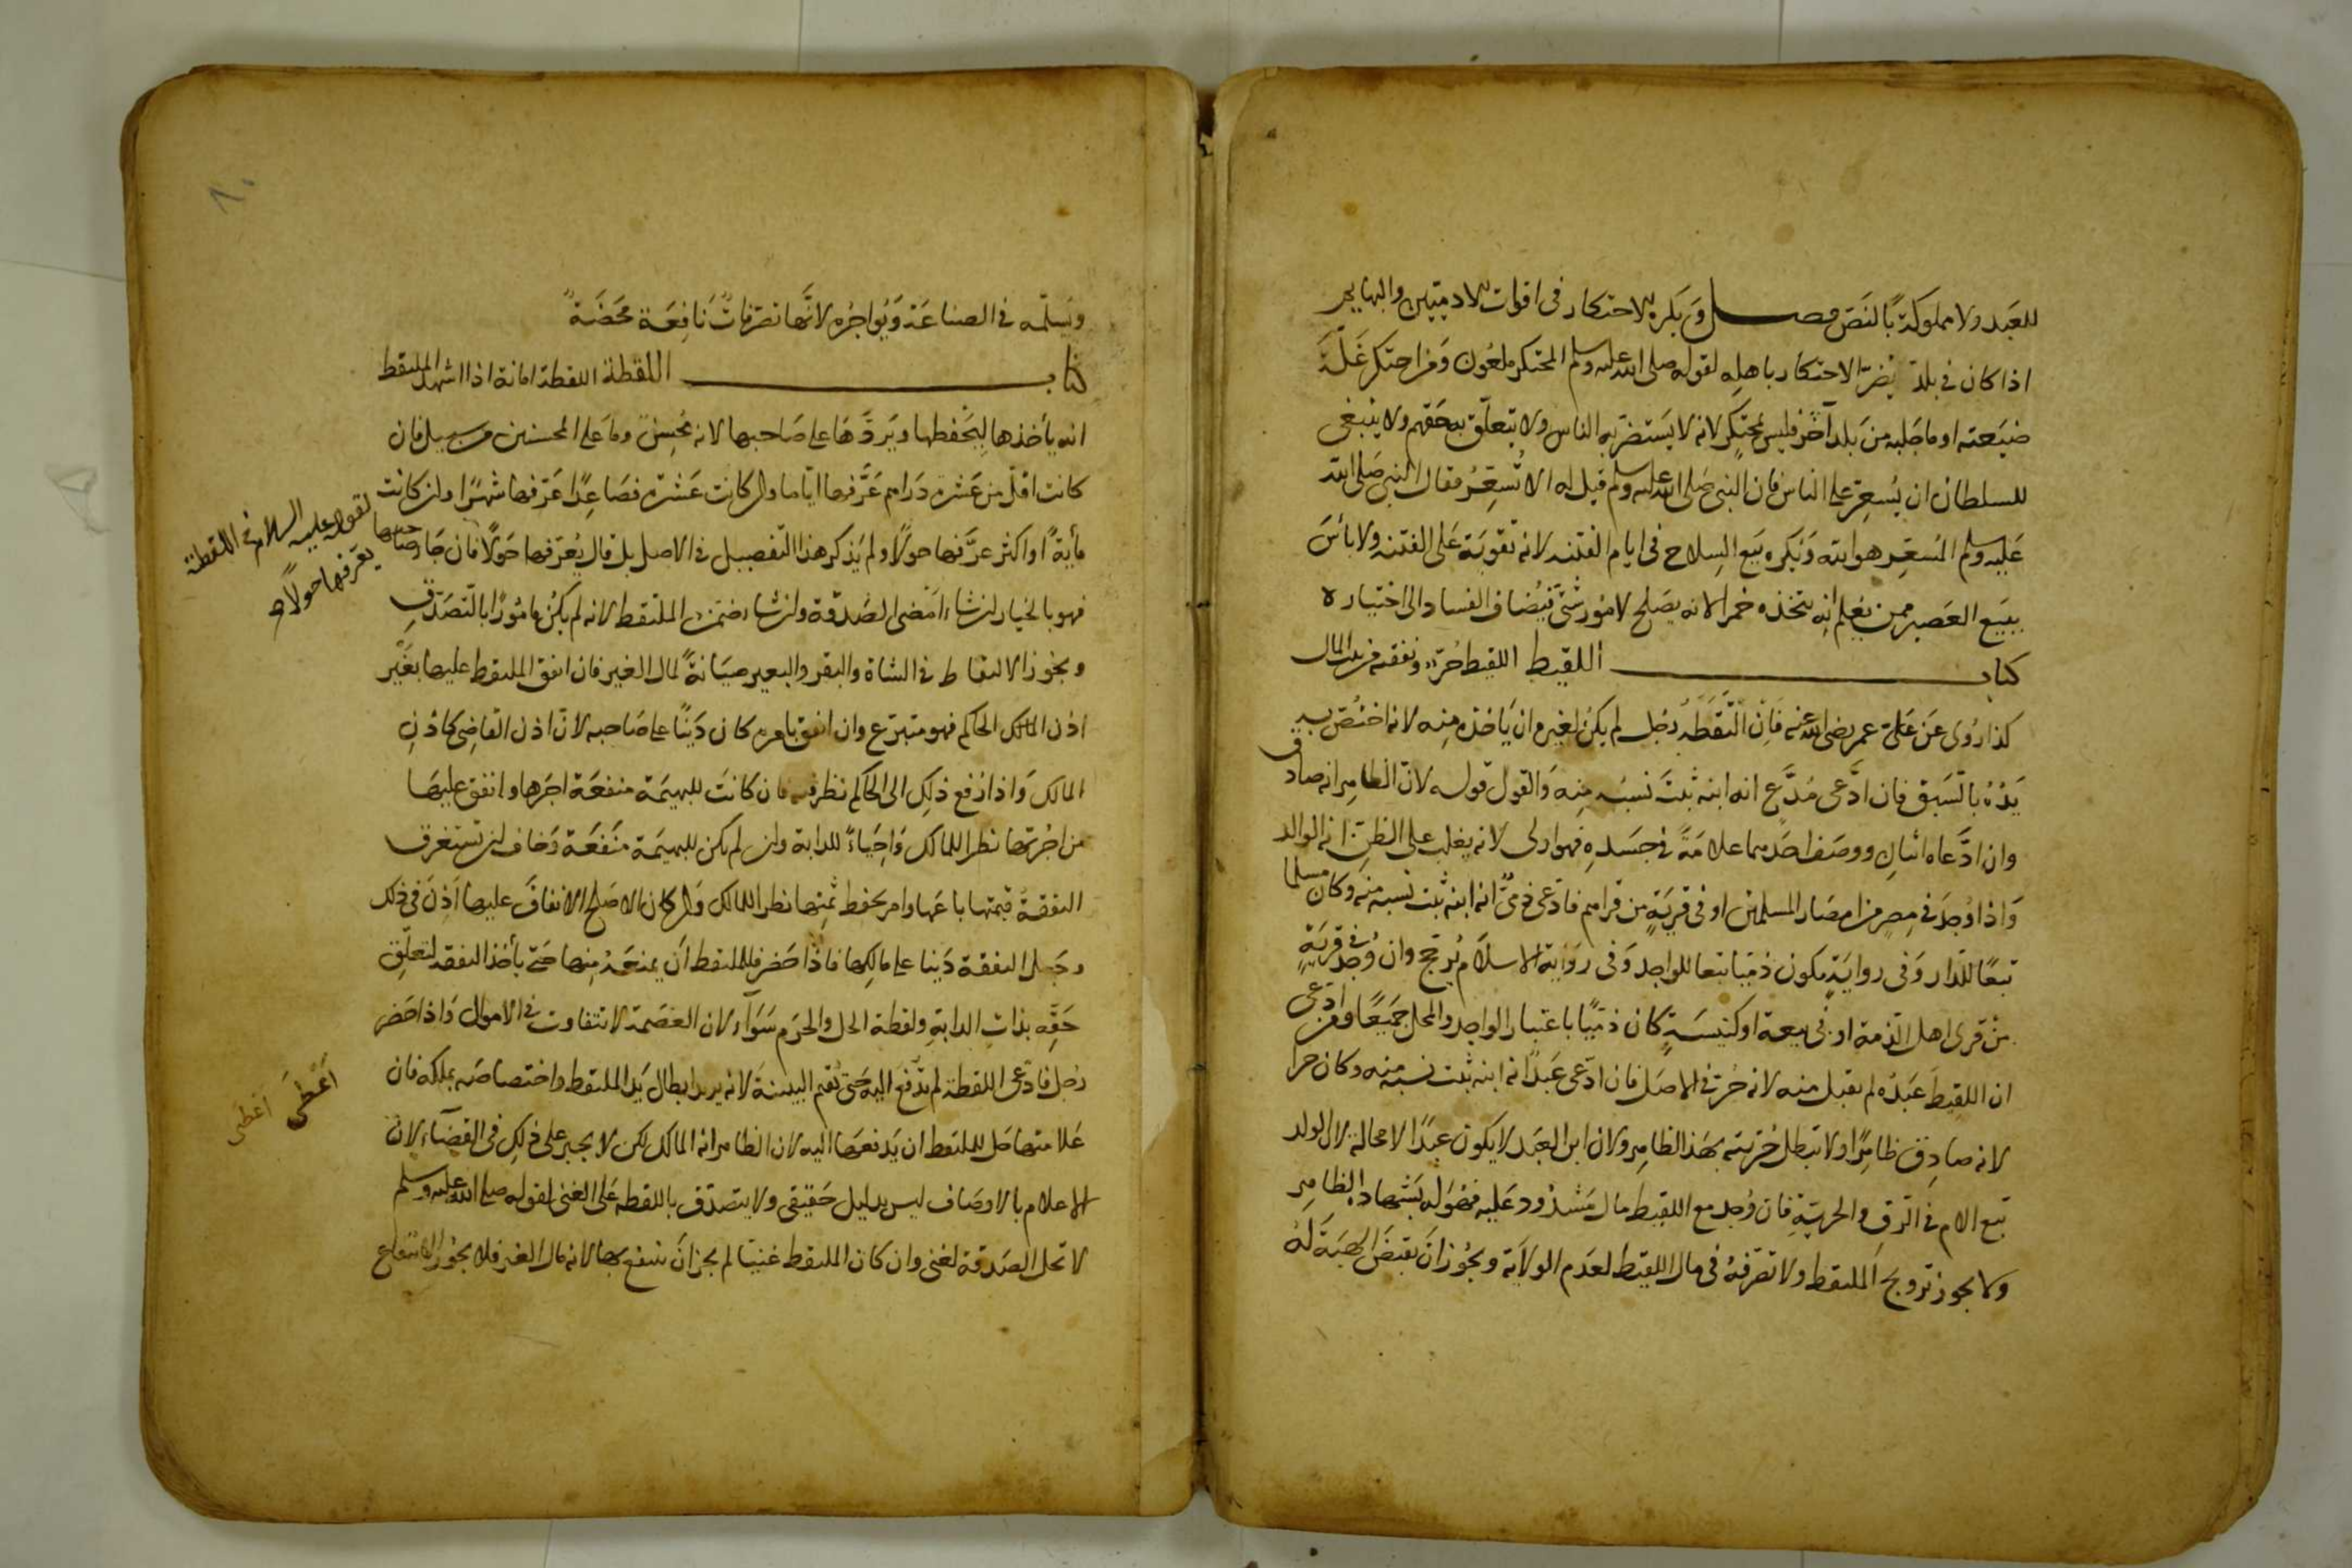 للعبد ولا مملوكة بالنص فصل ويكره الاحتكار في اقوات الادميين والبهايم
اذا كان في بلد يضر الاحتكار باهله لقوله صلى الله عليه وسلم المحتكر ملعون ومن احتكر غلة
ضيعته او ما جلبه من بلد آخر فليس بمحتكر لانه لا يستضر به الناس ولا يتعلق به حقهم ولا ينبغي
للسلطان ان يسعر على الناس فان النبي صلى الله عليه وسلم قيل له الا تسعر فقال النبي صلى الله
عليه وسلم المسعر هو الله ويكره بيع السلاح في ايام الفتنه لانه تقوية على الفتنه ولا بأس
ببيع العصير ممن يعلم انه يتخذه خمرا لانه يصلح لامور شتى فيضاف الفساد الى اختياره
كتاب اللقيط اللقيط حر ونفقته من بيت المال
كذا روى عن على و عمر رضى الله عنه فان التقطه رجل لم يكن لغيره ان ياخذه منه لانه اختص به
يده بالسبق فان ادعى مدع انه ابنه ثبت نسبه منه والقول قوله لان الظاهر انه صادق
وان ادعاه اثنان ووصف احدهما علامة في جسده فهو اولى لانه يغلب على الظن انه الوالد
واذا وجد في مصر من امصار المسلمين او في قرية من قراهم فادعى ذمي انه ابنه ثبت نسبه منه وكان مسلما
تبعا للدار وفى رواية يكون ذميا تبعا للواجد وفى رواية الاسلام يرجح وان وجد في قرية
من قرى اهل الذمة او في بيعة او كنيسة كان ذميا باعتبار الواجد والمحل جميعا ومن ادعى
ان اللقيط عبده لم يقبل منه لانه حر في الاصل فان ادعى عبد انه ابنه ثبت نسبه منه وكان حرا
لانه صادق ظاهرا ولا تبطل حريته بهذا الظاهر ولان ابن العبد لا يكون عبدا لا محالة لان الولد
تبع الام في الرق والحرية فان وجد مع اللقيط مال مشدود عليه فهو له بشهادة الظاهر
ولا يجوز تزويج الملتقط ولا تصرفه في مال اللقيط لعدم الولاية ويجوز ان يقبض الهبة له
٨٠
ويسلمه في الصناعة ويواجره لانها تصرفات نافعة محضة
كتاب اللقطة اللقطة امانة اذا اشهد الملتقط
انه يأخذها ليحفظها ويردها على صاحبها لانه محسن وما على المحسنين من سبيل فان
كانت اقل من عشرة دراهم عرفها اياما وان كانت عشرة فصاعدا عرفها شهرا وان كانت
مأية او اكثر عرفها حولا ولم يذكر هذا التفصيل في الاصل بل قال يعرفها حولا فان جا صاحبها
لقوله عليه السلام في اللقطة
يعرفها حولا
فهو بالخيار ان شاء امضى الصدقة وان شاء ضمن الملتقط لانه لم يكن مامورا بالتصدق
ويجوز الالتقاط في الشاة والبقر والبعير صيانة لمال الغير فان انفق الملتقط عليها بغير
اذن المالك الحاكم فهو متبرع وان انفق بامره كان دينا على صاحبه لان اذن القاضى كاذن
المالك واذا رفع ذلك الى الحاكم نظر فيه فان كانت للبهيمة منفعة اجرها وانفق عليها
من اجرتها نظرا للمالك واحياء للدابة وان لم يكن للبهيمة منفعة وخاف ان تستغرق
النفقة قيمتها باعها وامر بحفظ ثمنها نظرا للمالك وان كان الاصلح الانفاق عليها اذن في ذلك
وجعل النفقة دينا على مالكها فاذا حضر فللملتقط ان يمنعه منها حتى يأخذ النفقه لتعلق
حقه بذات الدابة ولقطة الحل والحرم سواء لان العصمة لا تتفاوت في الاموال واذا حضر
رجل فادعى اللقطة لم تدفع اليه حتى يقيم البينة لانه يريد ابطال يد الملتقط واختصاصه بملكه فان
اعطى
اعطى
علامتها حل للملتقط ان يدفعها اليه لان الظاهر انه المالك لكن لا يجبر على ذلك في القضاء لان
الاعلام بالاوصاف ليس بدليل حقيقى ولا يتصدق باللقطه على الغنى لقوله صلى الله عليه وسلم
لا تحل الصدقة لغنى وان كان الملتقط غنيا لم يجز ان ينتفع بها لانه مال الغير فلا يجوز الانتفاع